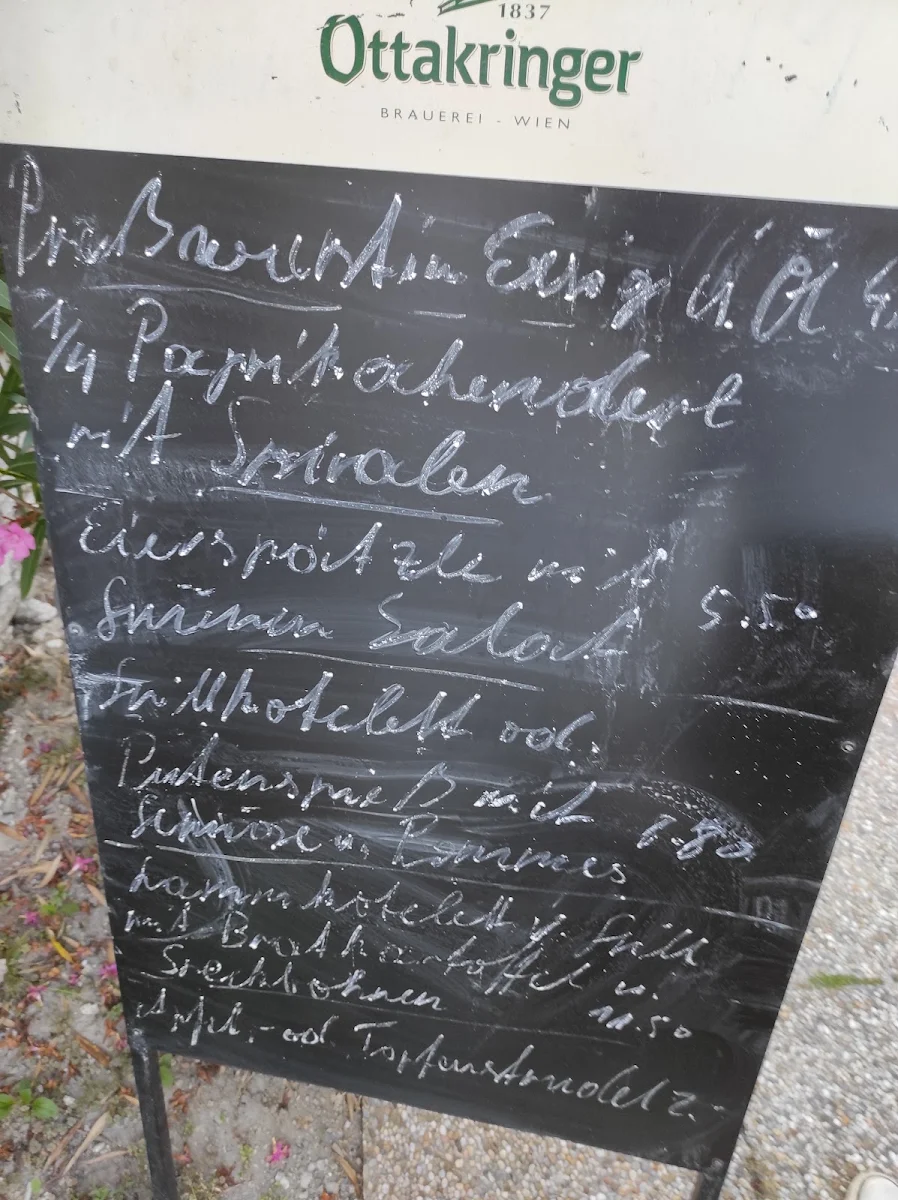 1837
Ottakringer
BRAUEREI - WIEN
Preßwurst in Essig u. Öl
1/4 Paprikahenderl
mit Spiralen
Eierspätzle mit
Grünem Salat 5.50
Grillkotelett od.
Putenspieß mit
Gemüse u. Pommes
Lammkotelett v. Grill
mit Bratkartoffel u.
Speckbohnen 11.50
Apfel- od Topfenstrudel 2.-